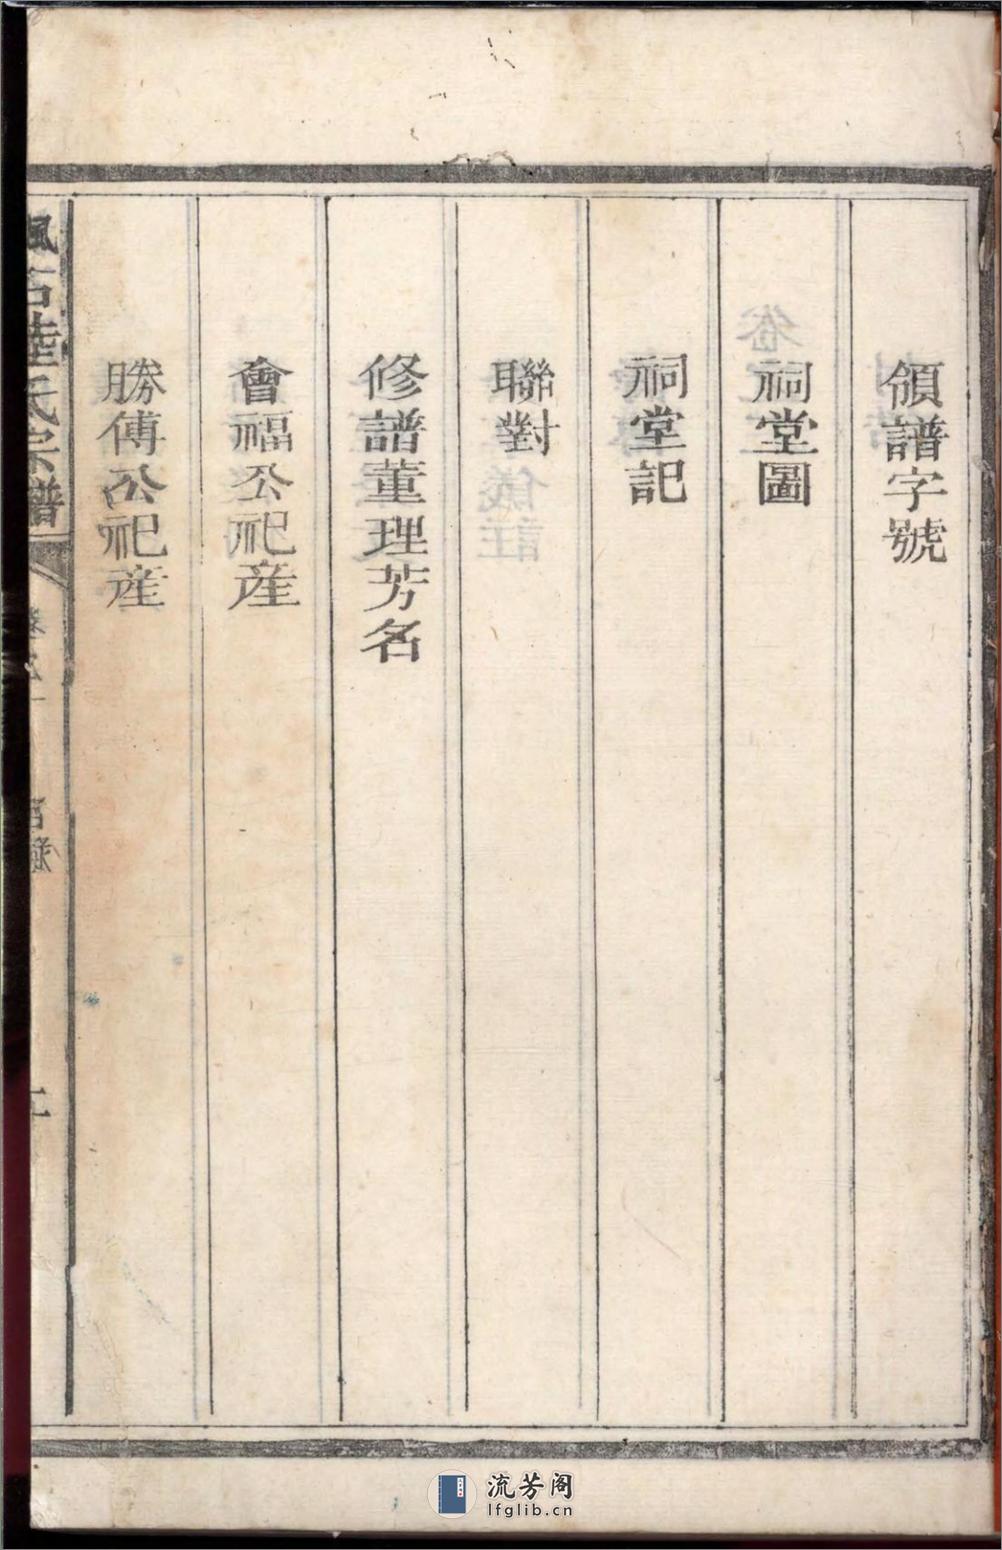 領譜字號
祠堂圖
祠堂記
聯對
修譜董理芳名
會福公祀産
勝傳公祀産
石陸氏宗譜
目錄
流芳阁
lfglib.cn